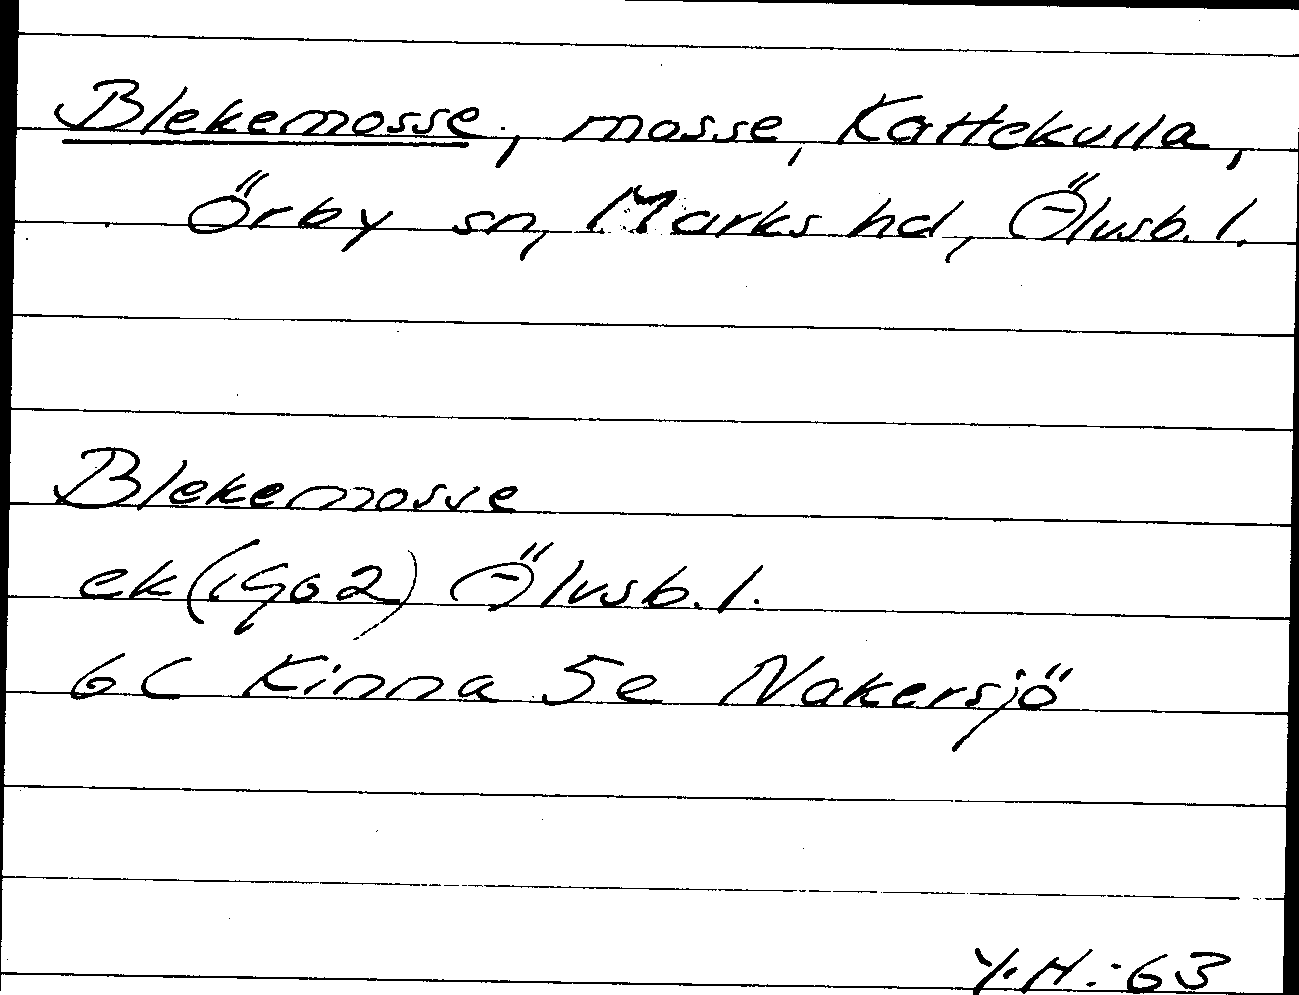 Blekemosse, mosse, Kattekulla,
Örby sn, Marks hd, Älvsb. l.
Blekemosse
ek (1902) Älvsb. l.
6C Kinna 5e Nakersjö
Y.H.:63